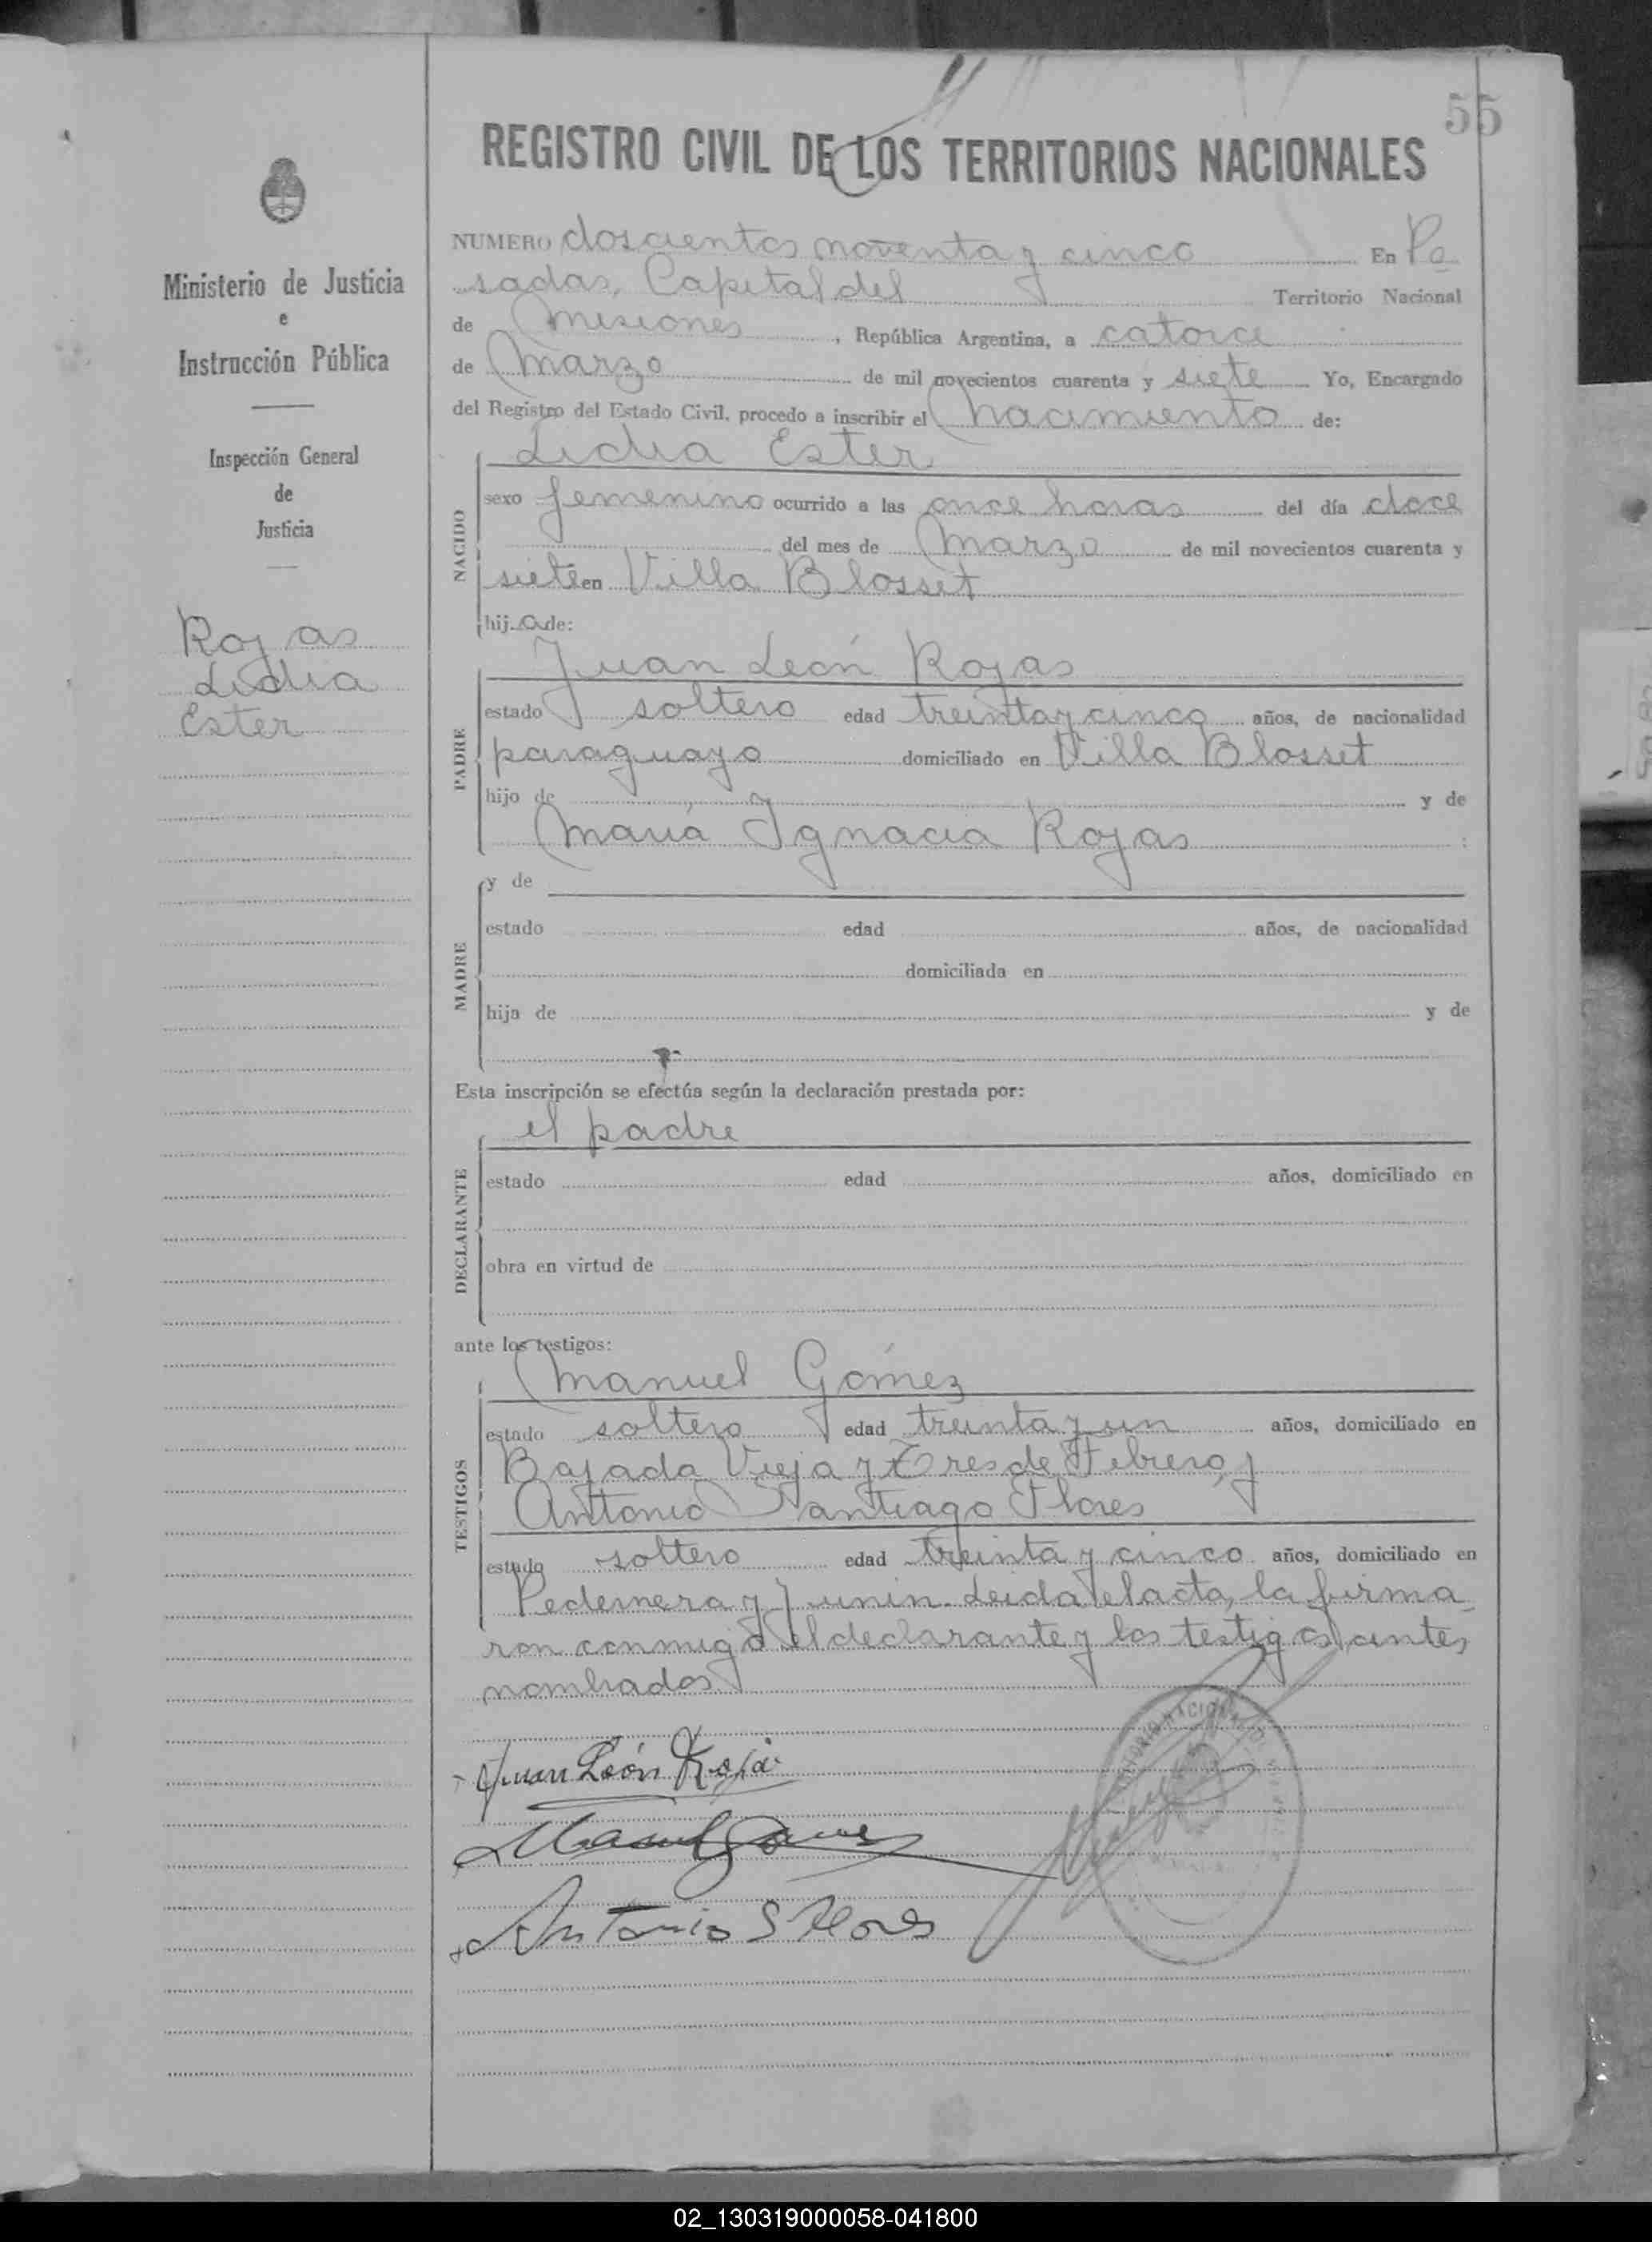 55
REGISTRO CIVIL DE LOS TERRITORIOS NACIONALES
Ministerio de Justicia
e
Instrucción Pública
Inspección General
de
Justicia
Rojas
Lidia
Ester
NUMERO doscientos noventa y cinco En Po
sadas, Capital del Territorio Nacional
de Misiones, República Argentina, a catorce
de Marzo de mil novecientos cuarenta y siete Yo, Encargado
del Registro del Estado Civil, procedo a inscribir el Nacimiento de:
Lidia Ester
NACIDO
sexo femenino ocurrido a las once horas del día doce
del mes de Marzo de mil novecientos cuarenta y
siete en Villa Blosset
hij a de:
Juan León Rojas
PADRE
estado soltero edad treinta y cinco años, de nacionalidad
paraguayo domiciliado en Villa Blosset
hijo de y de
María Ignacia Rojas :
y de
MADRE
estado edad años, de nacionalidad
domiciliada en
hija de y de
Esta inscripción se efectúa según la declaración prestada por:
el padre
DECLARANTE
estado edad años, domiciliado en
obra en virtud de
ante los testigos:
Manuel Gómez
TESTIGOS
estado soltero edad treinta y un años, domiciliado en
Bajada Vieja y Tres de Febrero y
Antonio Santiago Flores
estado soltero edad treinta y cinco años, domiciliado en
Pedernera y Junin. Leida el acta, la firma
ron conmigo el declarante y los testigos antes
nombrados
Juan León Roja
Manuel Gomez
Antonio S Flores
02_130319000058-041800